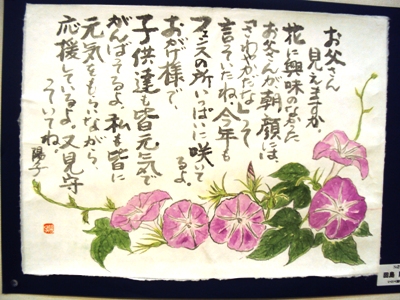 お父さん
見えますか。
花に興味のなかった
お父さんが、朝顔には、
「さわやかだな」って
言っていたね。今年も
フェンスの所いっぱいに咲いて
るよ。
おかげ様で、
子供達も皆元気で
がんばってるよ。私も皆に
元気をもらいながら、
応援しているよ。又見守
っていてね
陽子